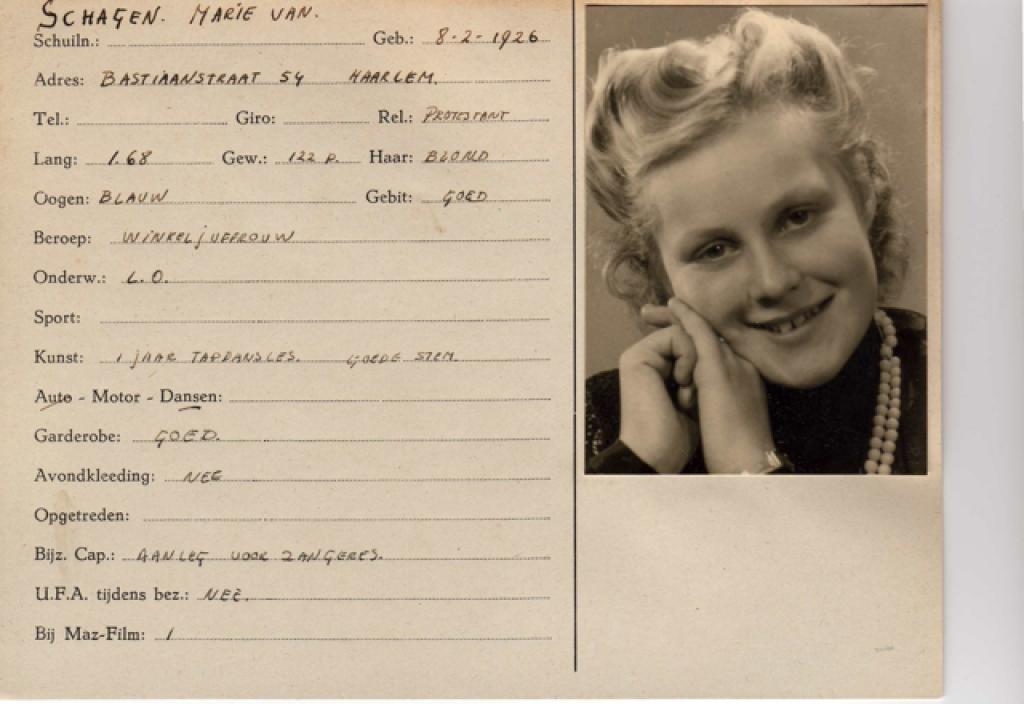 SCHAGEN. MARIE VAN.
Schuiln.: Geb.: 8-2-1926
Adres: BASTIAANSTRAAT 54 HAARLEM.
Tel.: Giro: Rel.: PROTESTANT
Lang: 1.68 Gew.: 122 P. Haar: BLOND
Oogen: BLAUW Gebit: GOED
Beroep: WINKELJUFFROUW
Onderw.: L.O.
Sport:
Kunst: 1 JAAR TAPDANSLES. GOEDE STEM.
Auto - Motor - Dansen:
Garderobe: GOED.
Avondkleeding: NEE
Opgetreden:
Bijz. Cap.: AANLEG VOOR ZANGERES.
U.F.A. tijdens bez.: NEE.
Bij Maz-Film: 1